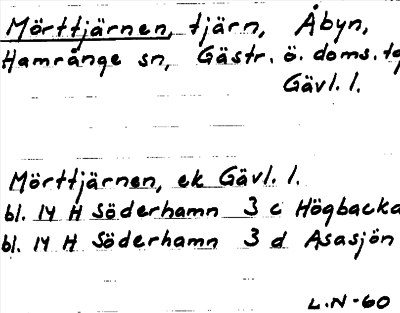 Mörttjärnen, tjärn, Åbyn,
Hamrånge sn, Gästr. ö. doms.
Gävl. l.
Mörttjärnen, ek Gävl. l.
bl. 14 H Söderhamn 3 c Högbacka
bl. 14 H Söderhamn 3 d Åsasjön
L.N-60